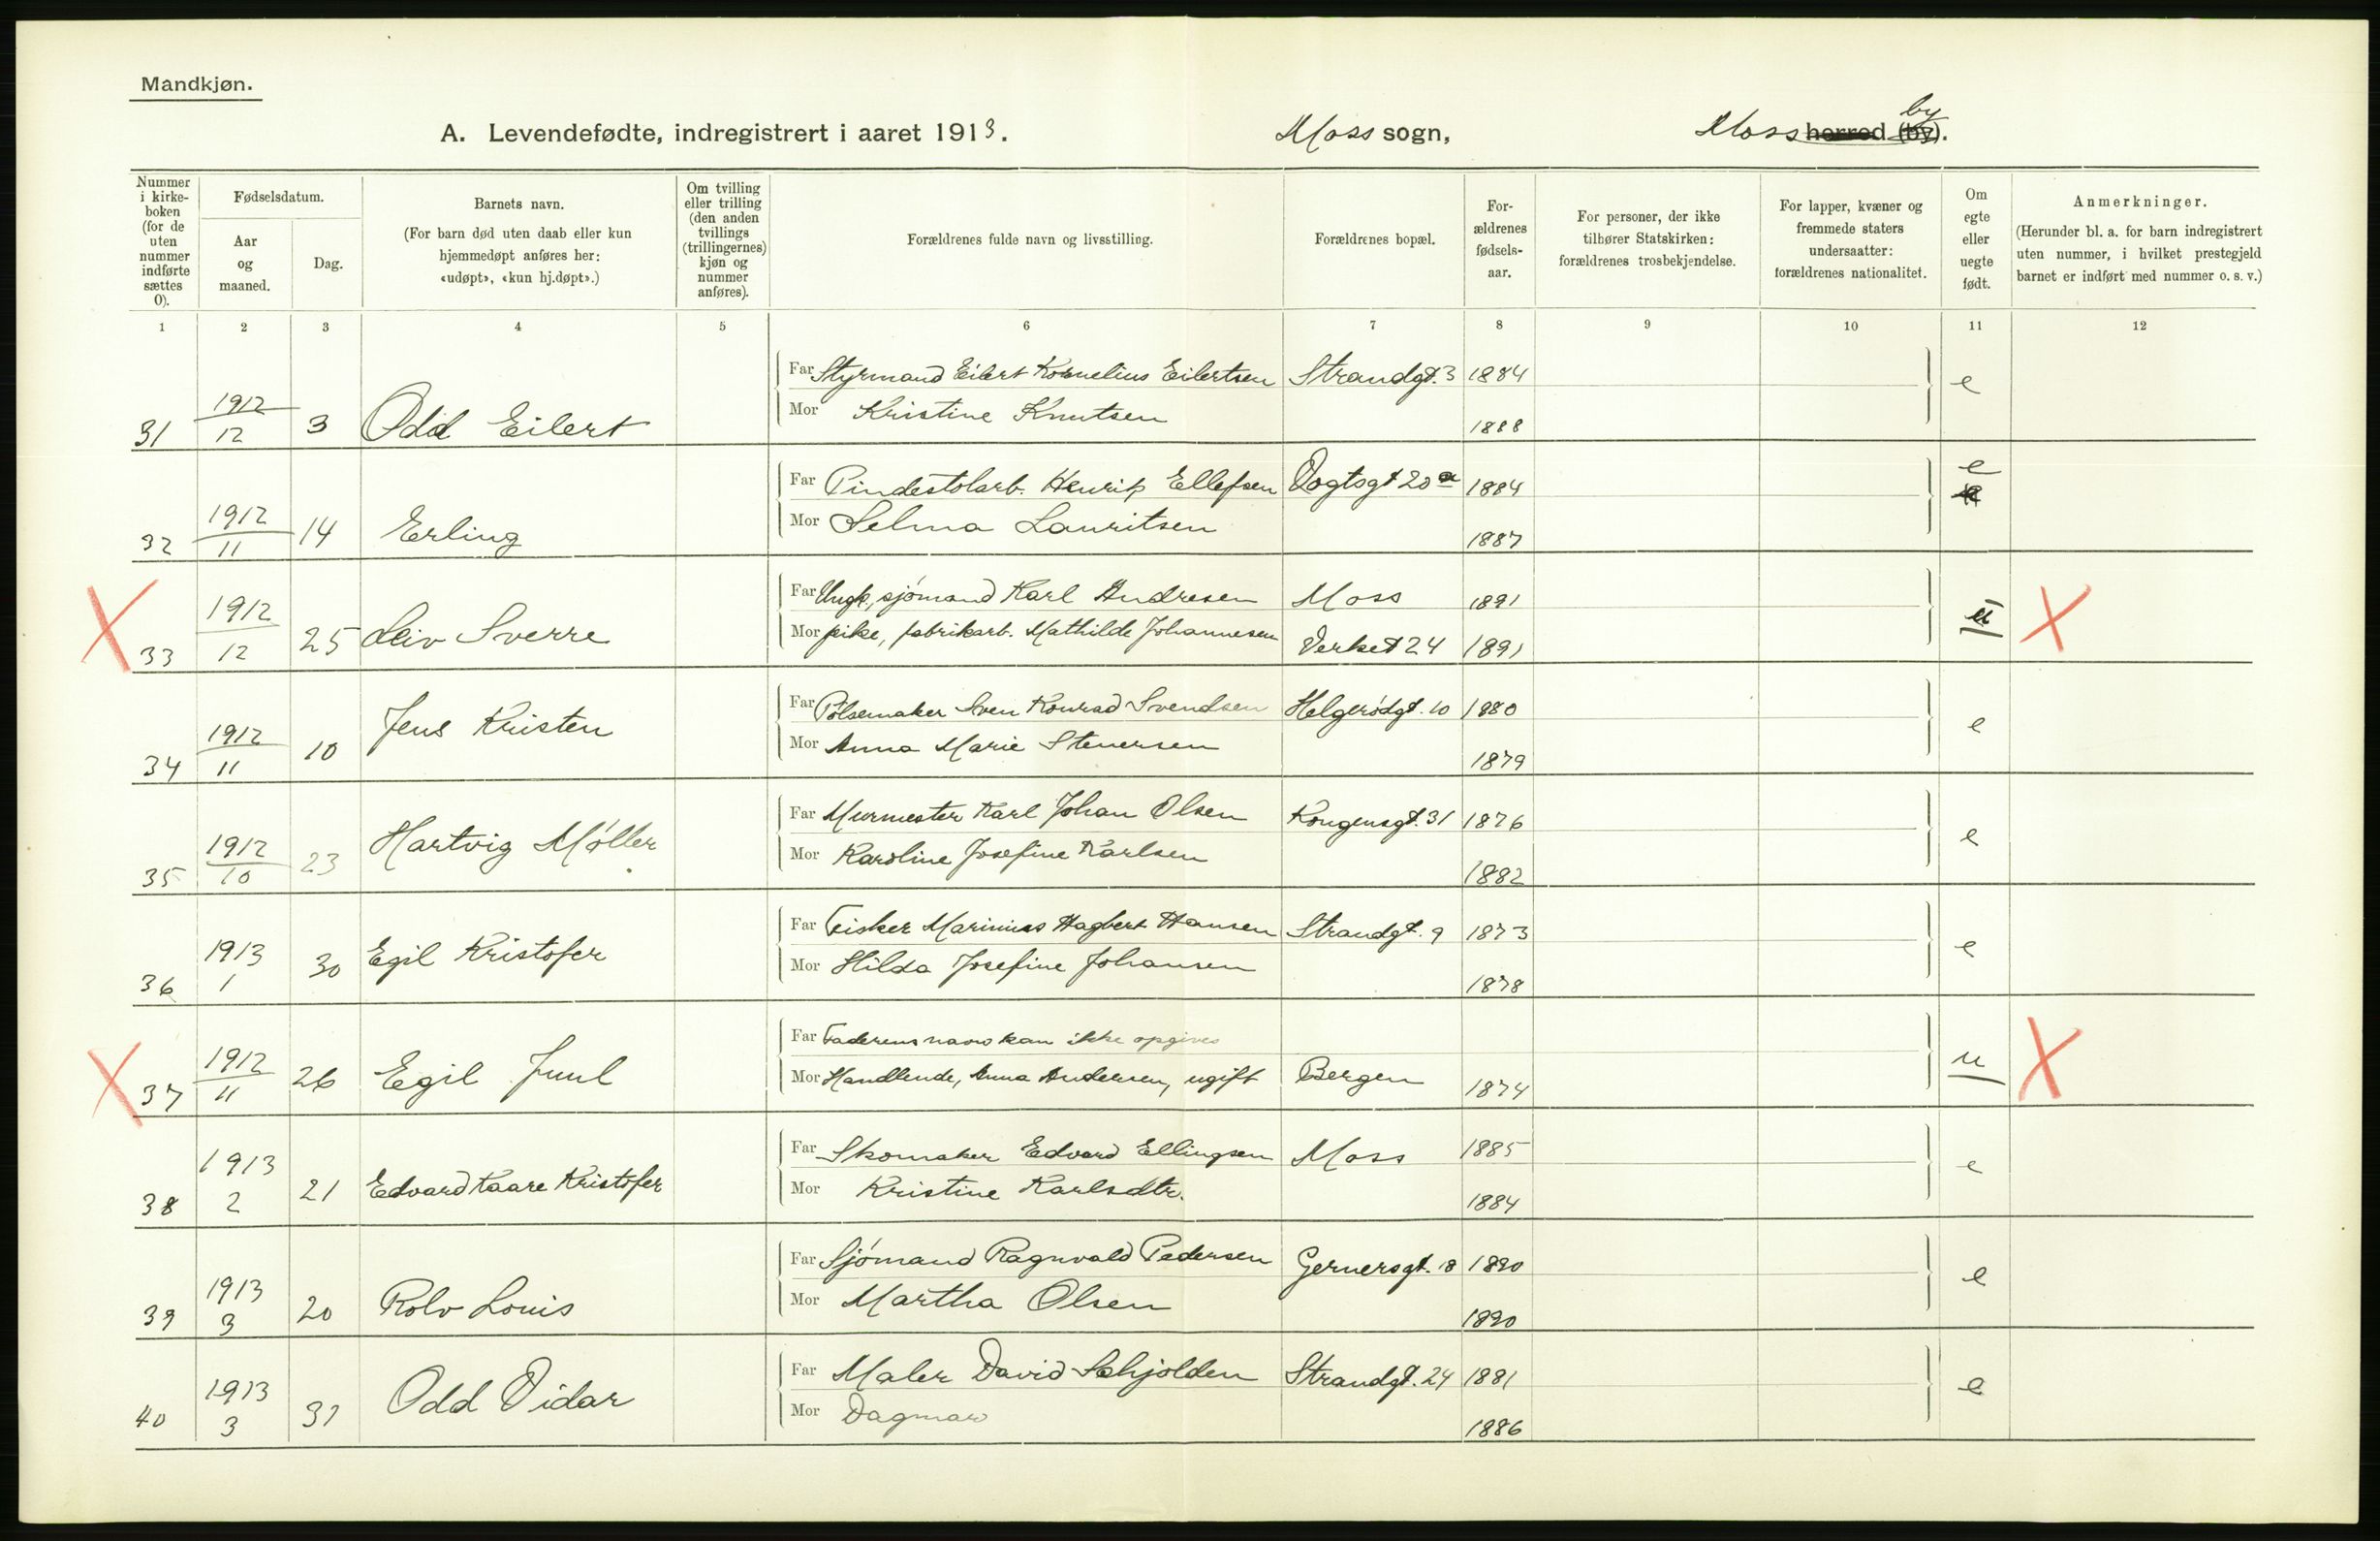 Mandkjøn.
A. Levendefødte, indregistrert i aaret 1913.
Moss sogn,
Moss herred (by). by
Nummer i kirke-boken (for de uten nummer indførte sættes 0).
Fødselsdatum.
Aar og maaned.
Dag.
Barnets navn.
(For barn død uten daab eller kun hjemmedøpt anføres her: «udøpt», «kun hj.døpt».)
Om tvilling eller trilling (den anden tvillings (trillingernes) kjøn og nummer anføres).
Forældrenes fulde navn og livsstilling.
Forældrenes bopæl.
For-ældrenes fødsels-aar.
For personer, der ikke tilhører Statskirken: forældrenes trosbekjendelse.
For lapper, kvæner og fremmede staters undersaatter: forældrenes nationalitet.
Om egte eller uegte født.
Anmerkninger.
(Herunder bl. a. for barn indregistrert uten nummer, i hvilket prestegjeld barnet er indført med nummer o. s. v.)
1 2 3 4 5 6 7 8 9 10 11 12
31 1912 12 3 Odd Eilert
Far Styrmand Eilert Kornelius Eilertsen Strandgt. 3 1884 e
Mor Kristine Knutsen 1888
32 1912 11 14 Erling
Far Pindestolarb. Henrik Ellefsen Vogtsgt 20 a 1884 e
Mor Selma Lauritsen 1887
33 1912 12 25 Leiv Sverre
Far Ungk, sjömand Karl Andresen Moss 1891 u
Mor pike, fabrikarb. Mathilde Johannesen Verket 24 1891
34 1912 11 10 Jens Kristen
Far Pölsemaker Sven Konrad Svendsen Helgerödgt. 10 1880 e
Mor Anna Marie Stenersen 1879
35 1912 10 23 Hartvig Möller
Far Murmester Karl Johan Olsen Kongensgt. 31 1876 e
Mor Karoline Josefine Karlsen 1882
36 1913 1 30 Egil Kristofer
Far Fisker Marinius Hagbert Hansen Strandgt. 9 1873 e
Mor Hilda Josefine Johansen 1878
37 1912 11 26 Egil Juul
Far Faderens navn kan ikke opgives u
Mor Handlende, Anna Andersen, ugift Bergen 1874
38 1913 2 21 Edvard Kaare Kristofer
Far Skomaker Edvard Ellingsen Moss 1885 e
Mor Kristine Karlsdtr. 1884
39 1913 3 20 Rolv Louis
Far Sjömand Ragnvald Pedersen Gernersgt. 18 1890 e
Mor Martha Olsen 1890
40 1913 3 31 Odd Vidar
Far Maler David Schjolden Strandgt. 24 1881 e
Mor Dagmar 1886